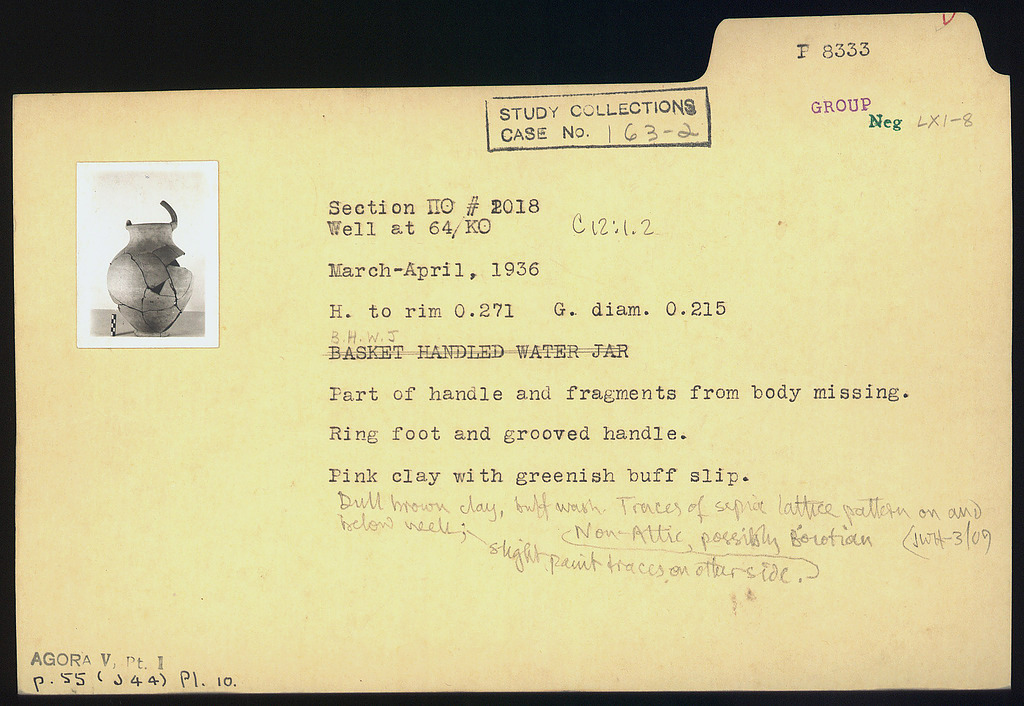 P 8333
STUDY COLLECTIONS
CASE No. 163-2
GROUP
Neg LXI-8
Section ΠΘ # 2018
Well at 64/ΚΘ C 12:1.2
March-April, 1936
H. to rim 0.271 G. diam. 0.215
B.H.W.J
BASKET HANDLED WATER JAR
Part of handle and fragments from body missing.
Ring foot and grooved handle.
Pink clay with greenish buff slip.
Dull brown clay, buff wash. Traces of sepia lattice pattern on and
below neck; (Non-Attic, possibly Boeotian (JWH-3/09)
slight paint traces on other side.)
AGORA V, Pt. I
p. 55 (J 44) Pl. 10.